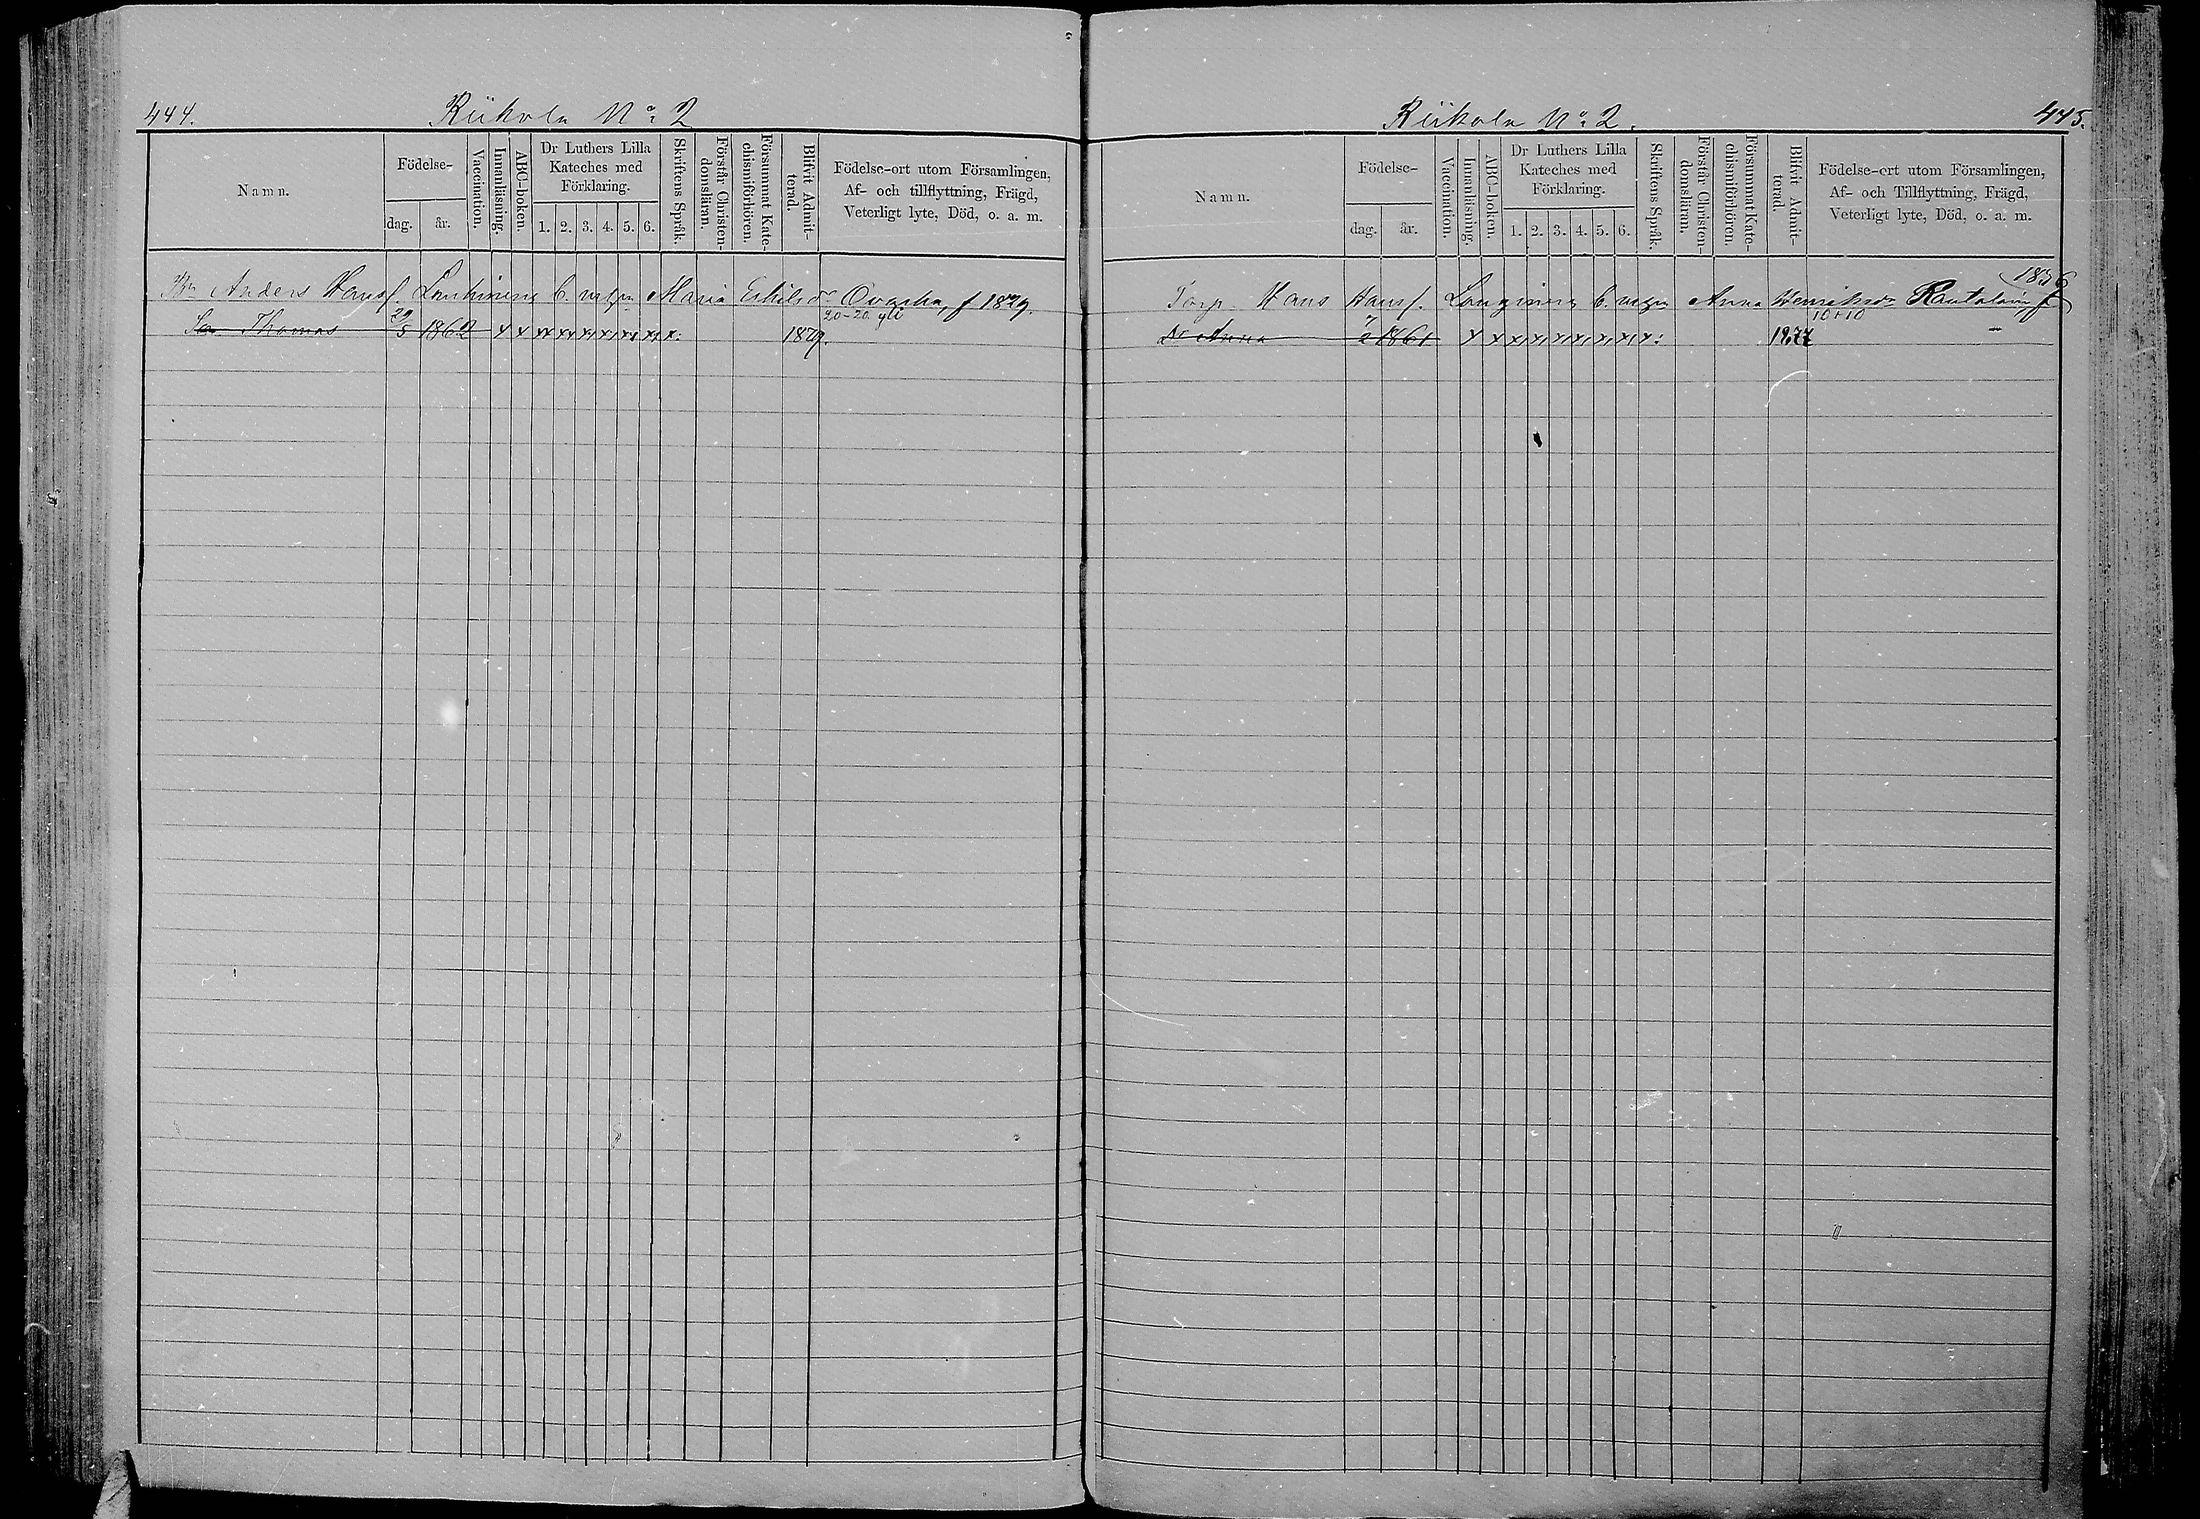 444.
Riikola No 2
Namn.
Födelse-
dag.
år.
Vaccination.
Innanläsning.
ABC-boken.
Dr Luthers Lilla
Kateches med
Förklaring.
1. 2. 3. 4. 5. 6.
Skriftens Språk.
Förstår Christen-
domsläran.
Försummat Kate-
chismiförhören.
Blifvit Admit-
terad.
Födelse-ort utom Församlingen,
Af- och tillflyttning, Frägd,
Veterligt lyte, Död, o. a. m.
Anders Hansf. C. Maria f 1879.
20-20 yli
Son Thomas 29/5 1862 x x x x x x x x x x: 1879.
Riikola No 2.
445.
Namn.
Födelse-
dag.
år.
Vaccination.
Innanläsning.
ABC-boken.
Dr Luthers Lilla
Kateches med
Förklaring.
1. 2. 3. 4. 5. 6.
Skriftens Språk.
Förstår Christen-
domsläran.
Försummat Kate-
chismiförhören.
Blifvit Admit-
terad.
Födelse-ort utom Församlingen,
Af- och Tillflyttning, Frägd,
Veterligt lyte, Död, o. a. m.
Torp. Hans Hansf. C. Anna Henriksdr
10+10
Dr Anna 1861 x x x x x x x x x: 1877